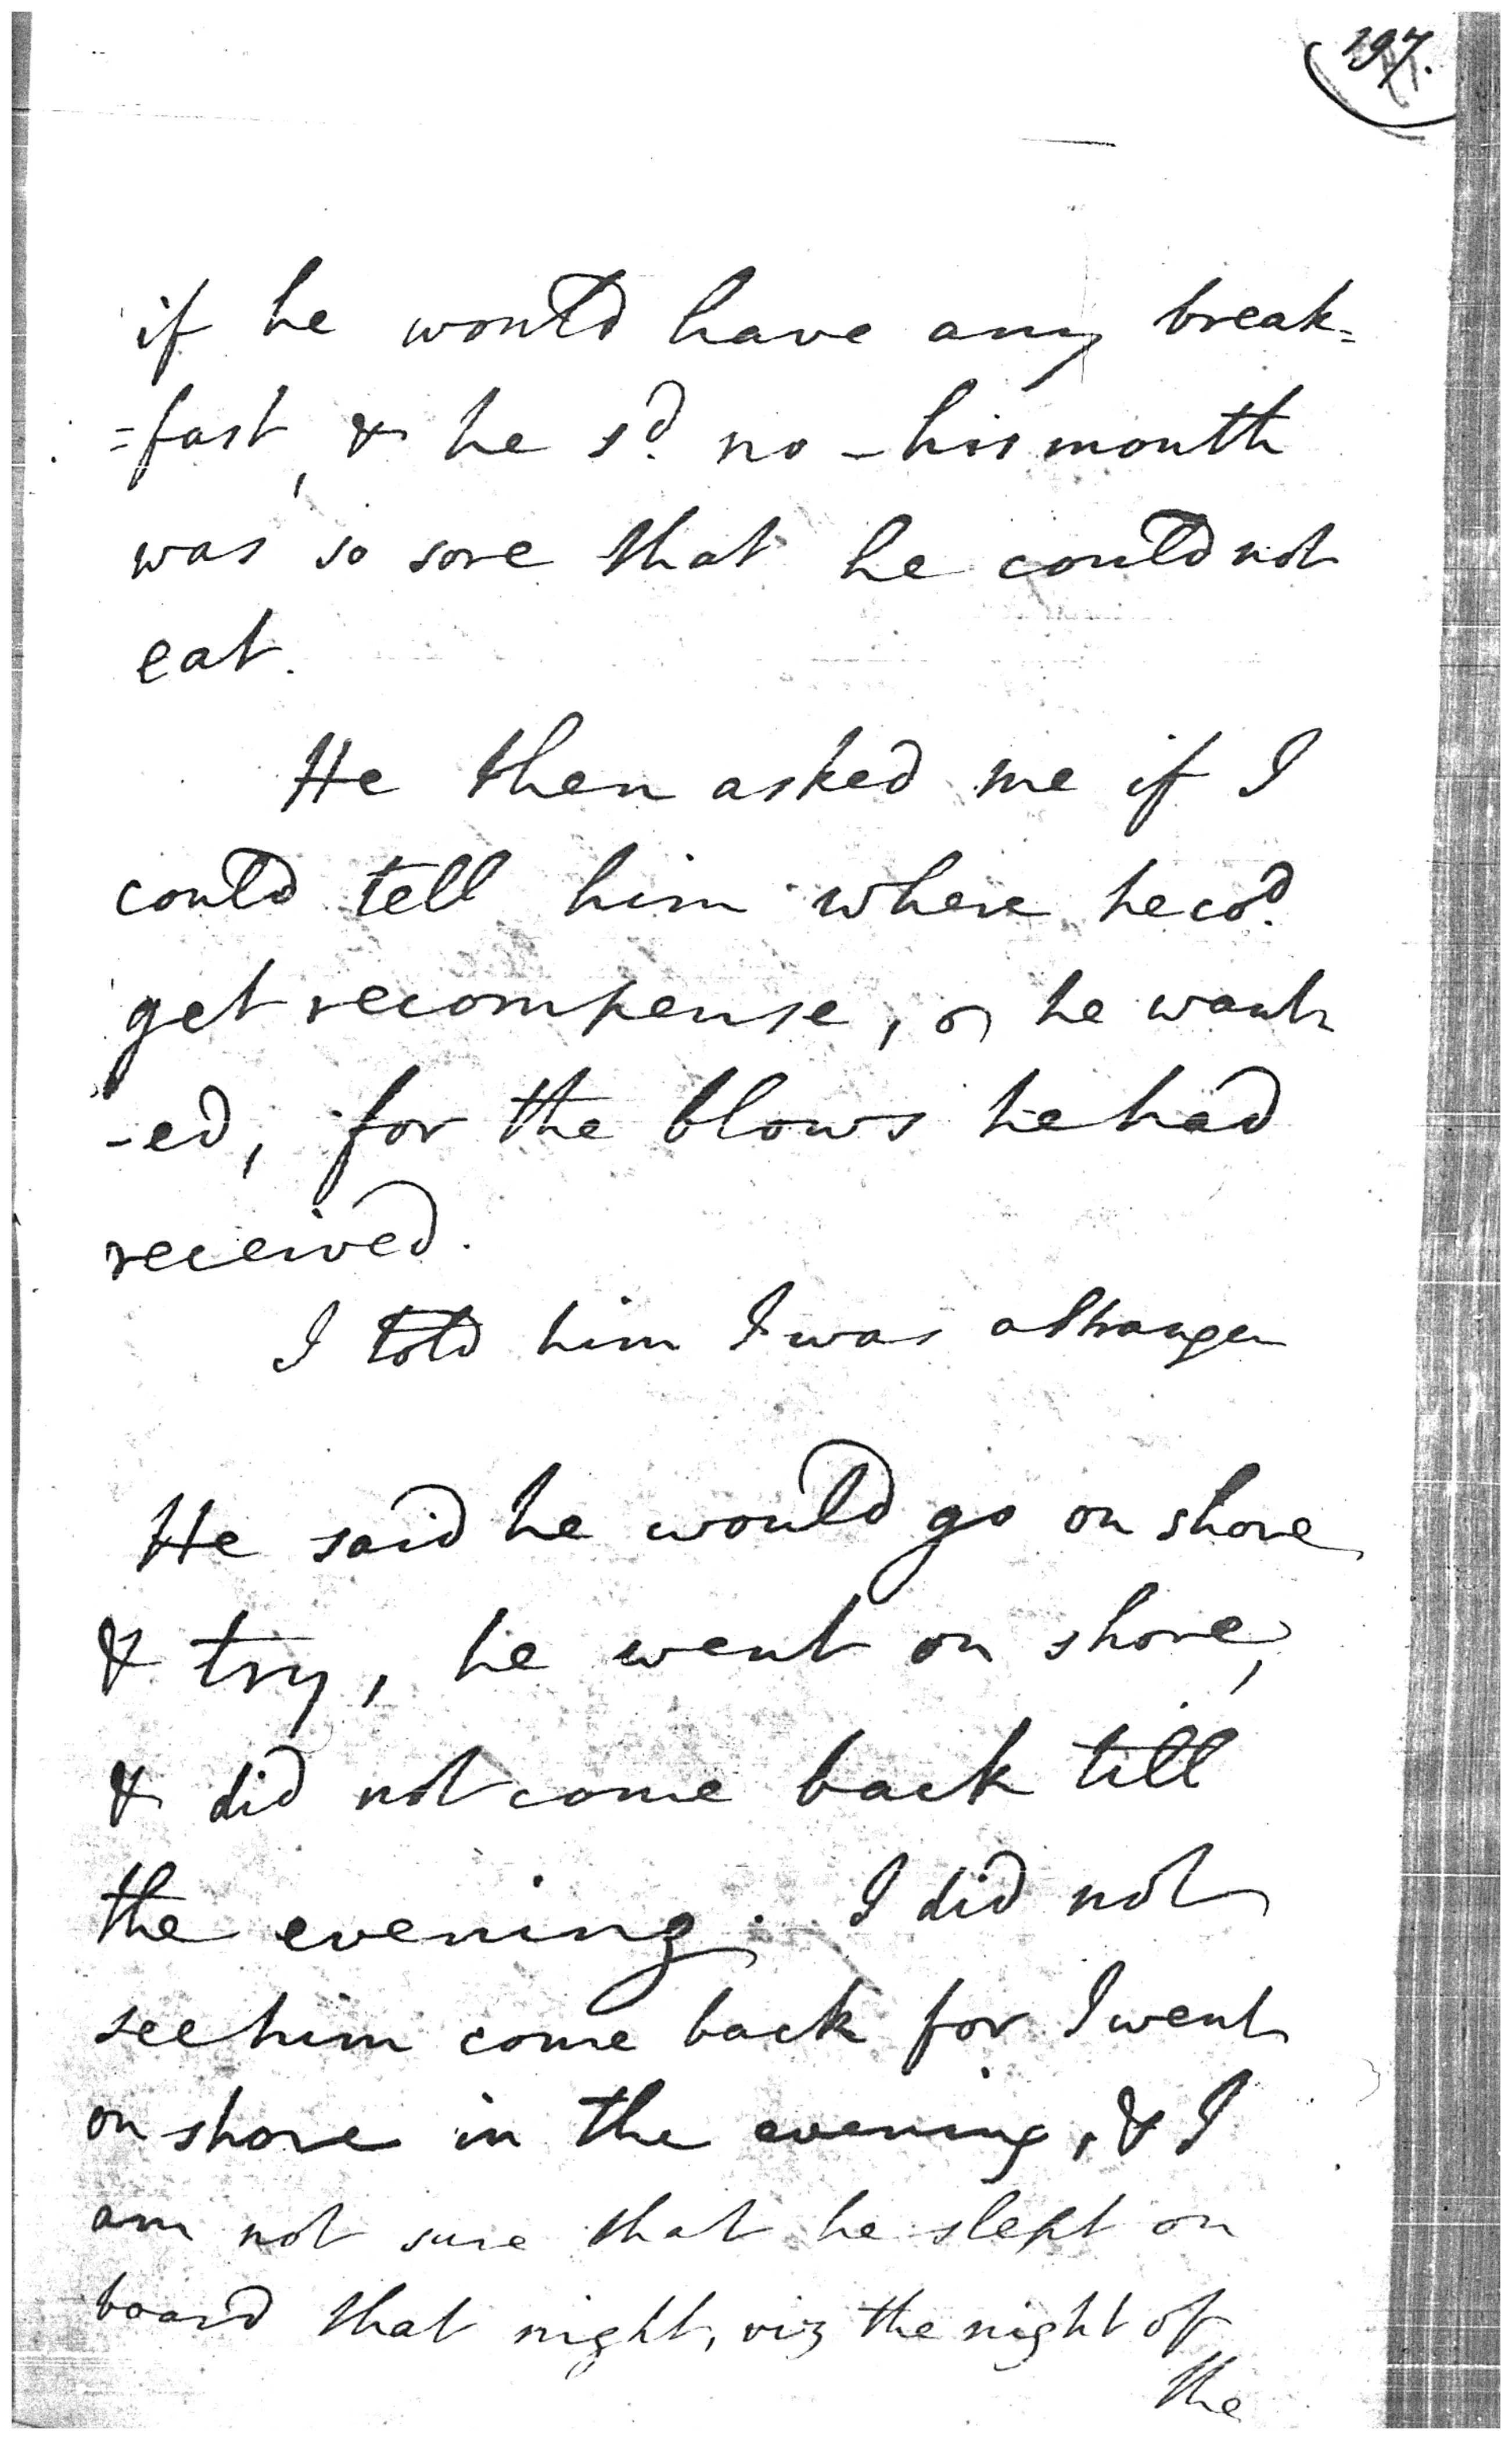 197.
if he would have any break=
=fast, & he sd. no – his mouth
was so sore that he could not
eat.
He then asked me if I
could tell him where he cod.
get recompense, as he want
-ed, for the blows he had
received.
I told him I was a stranger
He said he would go on shore
& try, he went on shore,
& did not come back till
the evening. I did not
see him come back for I went
on shore in the evening, & I
am not sure that he slept on
board that night, viz the night of
the